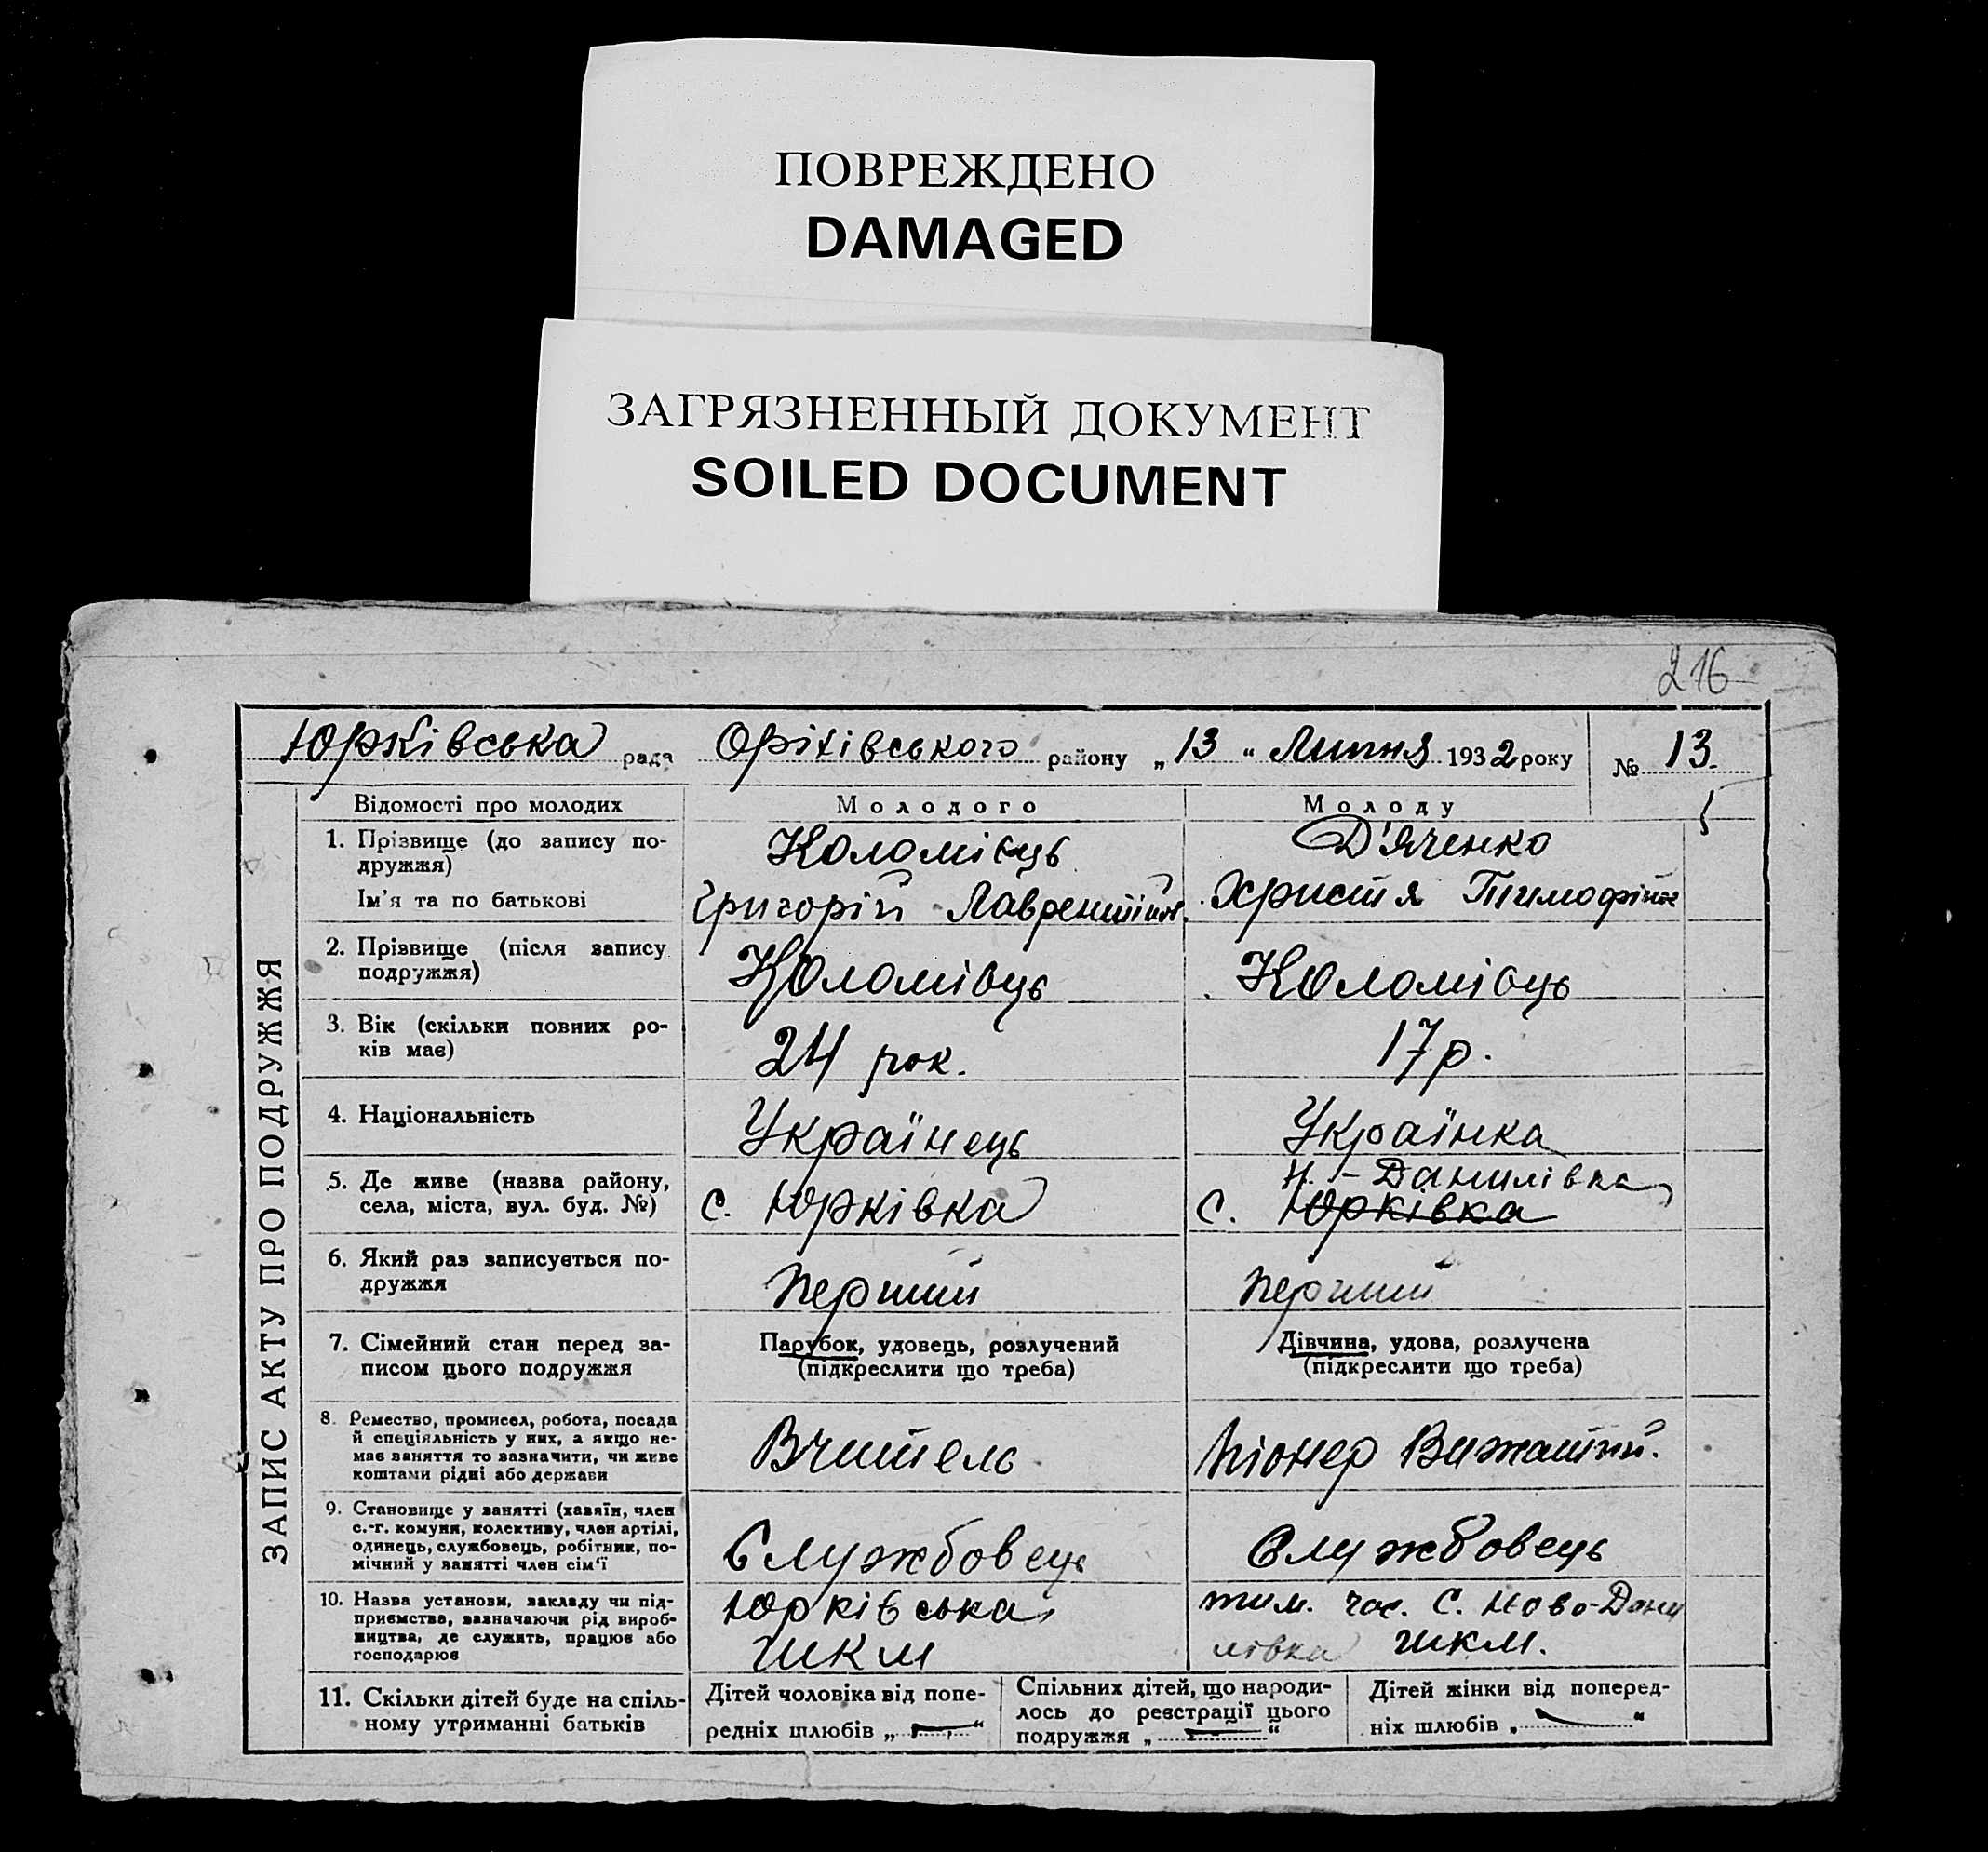 ПОВРЕЖДЕНО
DAMAGED
ЗАГРЯЗНЕННЫЙ ДОКУМЕНТ
SOILED DOCUMENT
216
Юрківська рада Оріхівського району „13“ Липня 1932 року № 13.
ЗАПИС АКТУ ПРО ПОДРУЖЖЯ
Відомості про молодих
Молодого
Молоду
1. Прізвище (до запису по-
дружжя)
Ім'я та по батькові
Коломієць
Григорій Лаврентійов.
Д'яченко
Христя Тимофійов
2. Прізвище (після запису
подружжя)
Коломієць
Коломієць
3. Вік (скільки повних ро-
ків має)
24 рок.
17 р.
4. Національність
Українець
Українка
5. Де живе (назва району,
села, міста, вул. буд. №)
с. Юрківка
Н.-Данилівка
с. Юрківка
6. Який раз записується по-
дружжя
Перший
Перший
7. Сімейний стан перед за-
писом цього подружжя
Парубок, удовець, розлучений
(підкреслити що треба)
Дівчина, удова, розлучена
(підкреслити що треба)
8. Ремество, промисел, робота, посада
й спеціяльність у них, а якщо не-
має заняття то зазначити, чи живе
коштами рідні або держави
Вчитель
Піонер Вижатий.
9. Становище у занятті (хазяїн, член
с.-г. комуни, колективу, член артілі,
одинець, службовець, робітник, по-
мічний у занятті член сім'ї
Службовець
Службовець
10. Назва установи, закладу чи під-
приємства, зазначаючи рід вироб-
ництва, де служить, працює або
господарює
Юрківська
ШКМ
тим. час. С. Ново-Дани
лівка ШКМ.
11. Скільки дітей буде на спіль-
ному утриманні батьків
Дітей чоловіка від попе-
редніх шлюбів „ — “
Спільних дітей, що народи-
лось до реєстрації цього
подружжя „ — “
Дітей жінки від поперед-
ніх шлюбів „ — “